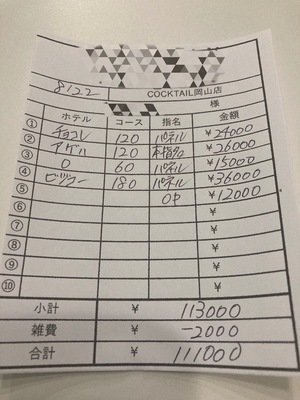 8122 COCKTAIL岡山店
様
ホテル コース 指名 金額
① チョコレ 120 パネル ¥24000
② アゲル 120 本指名 ¥26000
③ O 60 パネル ¥15000
④ 180 パネル ¥36000
⑤ OP ¥12000
⑥ ¥
⑦ ¥
⑧ ¥
⑨ ¥
⑩ ¥
小計 ¥ 113000
雑費 ¥ -2000
合計 ¥ 111000